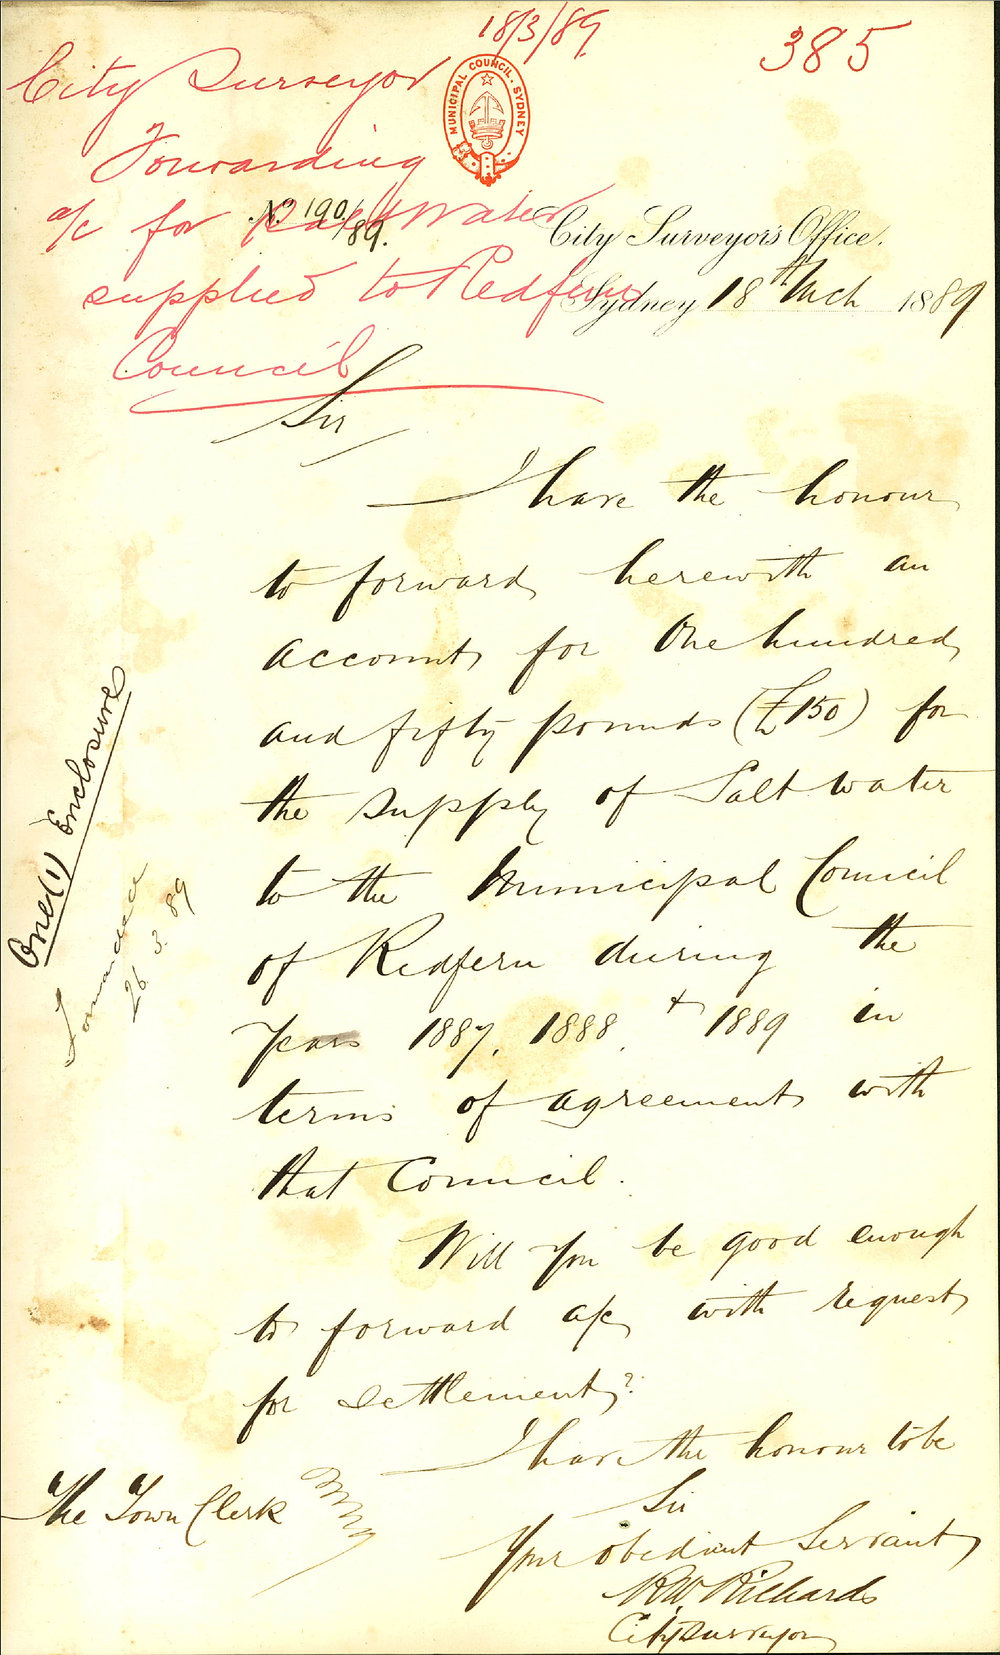 18/3/89
385
City Surveyor
Forwarding
a/c for Salt Water
supplied to Redfern
Council
MUNICIPAL COUNCIL · SYDNEY
No. 190/89.
City Surveyor's Office.
Sydney 18th Mch 1889
Sir
I have the honour
to forward herewith an
account for One hundred
and fifty pounds (£150) for
the supply of Salt water
to the Municipal Council
of Redfern during the
years 1887, 1888, + 1889 in
terms of agreement with
that Council.
Will you be good enough
to forward a/c with request
for settlement?
I have the honour to be
Sir
Your obedient Servant
R W Richards
City Surveyor
The Town Clerk
One (1) Enclosure
Forwarded
26.3.89